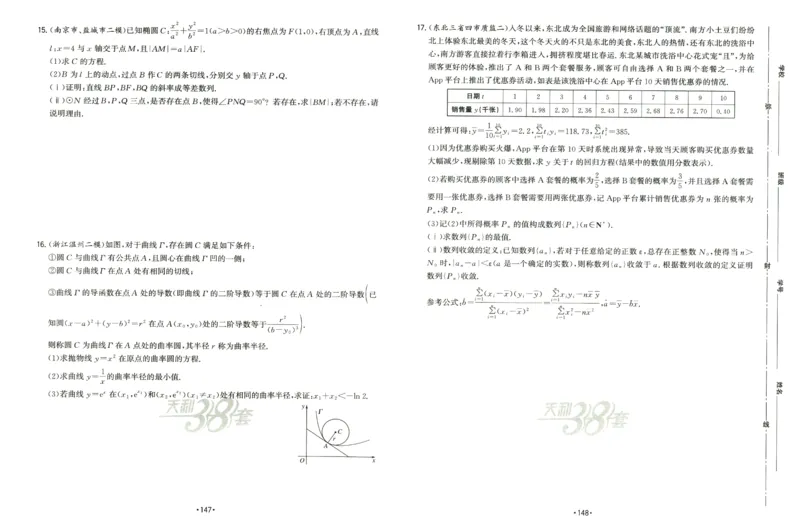 15. (南京市、盐城市二模)已知椭圆 C: x²/a² + y²/b² =1(a>b>0)的右焦点为 F(1,0),右顶点为 A,直线
l:x=4 与 x 轴交于点 M,且|AM|=a|AF|.
(1)求 C 的方程.
(2)B 为 l 上的动点,过点 B 作 C 的两条切线,分别交 y 轴于点 P,Q.
(ⅰ)证明:直线 BP,BF,BQ 的斜率成等差数列.
(ⅱ)⊙N 经过 B,P,Q 三点,是否存在点 B,使得∠PNQ=90°? 若存在,求|BM|;若不存在,请
说明理由.
16. (浙江温州二模)如图,对于曲线 Γ,存在圆 C 满足如下条件:
①圆 C 与曲线 Γ 有公共点 A,且圆心在曲线 Γ 凹的一侧;
②圆 C 与曲线 Γ 在点 A 处有相同的切线;
③曲线 Γ 的导函数在点 A 处的导数(即曲线 Γ 的二阶导数)等于圆 C 在点 A 处的二阶导数(已
知圆(x-a)²+(y-b)²=r² 在点 A(x₀,y₀)处的二阶导数等于 r²/(b-y₀)³).
则称圆 C 为曲线 Γ 在 A 点处的曲率圆,其半径 r 称为曲率半径.
(1)求抛物线 y=x² 在原点的曲率圆的方程.
(2)求曲线 y=1/x 的曲率半径的最小值.
(3)若曲线 y=eˣ 在(x₁,e^x₁)和(x₂,e^x₂)(x₁≠x₂)处有相同的曲率半径,求证:x₁+x₂<-ln 2.
y
Γ
C
r
A
O
x
天利38套
·147·
17. (东北三省四市质监二)人冬以来,东北成为全国旅游和网络话题的“顶流”. 南方小土豆们纷纷
北上体验东北最美的冬天,这个冬天火的不只是东北的美食、东北人的热情,还有东北的洗浴中
心,南方游客直接拉着行李箱进入,拥挤程度堪比春运. 东北某城市洗浴中心花式宠“且”,为给
顾客更好的体验,推出了 A 和 B 两个套餐服务,顾客可自由选择 A 和 B 两个套餐之一,并在
App 平台上推出了优惠活动,如表是该洗浴中心在 App 平台 10 天销售优惠券的情况.
日期 t 1 2 3 4 5 6 7 8 9 10
销售量 y(千张) 1.90 1.98 2.20 2.36 2.43 2.59 2.68 2.76 2.70 0.40
经计算可得:ȳ=1/10 Σyᵢ=2.2, Σtᵢyᵢ=118.73, Σtᵢ²=385.
(1)因为优惠券购买火爆,App 平台在第 10 天时系统出现异常,导致当天顾客购买优惠券数量
大幅减少,现剔除第 10 天数据,求 y 关于 t 的回归方程(结果中的数值用分数表示).
(2)若购买优惠券的顾客中选择 A 套餐的概率为 2/5,选择 B 套餐的概率为 3/5,并且选择 A 套餐需
要用一张优惠券,选择 B 套餐需要用两张优惠券,记 App 平台累计销售优惠券为 n 张的概率为
Pₙ,求 Pₙ.
(3)记(2)中所得概率 Pₙ 的值构成数列{Pₙ}(n∈N*).
(ⅰ)求数列{Pₙ}的最值.
(ⅱ)数列收敛的定义:已知数列{aₙ},若对于任意给定的正数 ε,总存在正整数 N₀,使得当 n>
N₀ 时,|aₙ-a|<ε(a 是一个确定的实数),则称数列{aₙ}收敛于 a. 根据数列收敛的定义证明
数列{Pₙ}收敛.
参考公式:b̂=Σ(xᵢ-x̄)(yᵢ-ȳ)/Σ(xᵢ-x̄)²=(Σxᵢyᵢ-nx̄ȳ)/(Σxᵢ²-nx̄²), â=ȳ-b̂x̄.
天利38套
·148·
学校
装
班级
订
学号
姓名
线